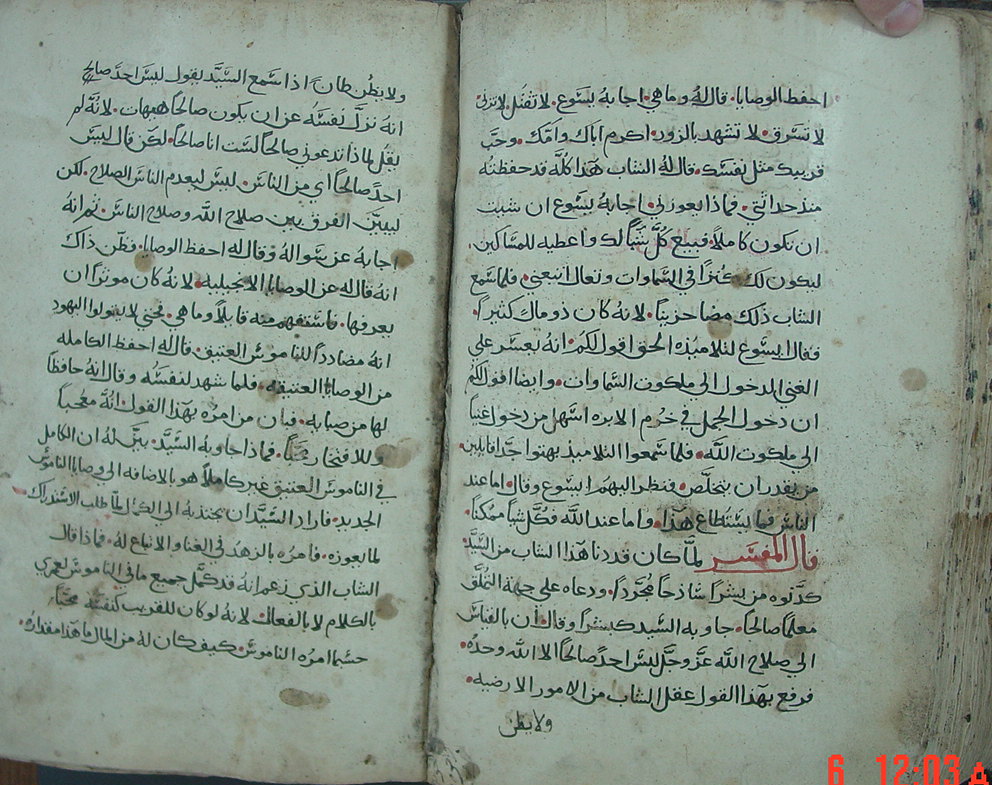 احفظ الوصايا. قال له وما هي. اجابهُ يسوع. لا تقتل لا تزني
لا تسرق. لا تشهد بالزور. اكرم اباك وامّك. وحب
قريبك مثل نفسك. قال لهُ الشاب هذا كلّه قد حفظته
منذ حداثتي. فماذا يعوزني. اجابهُ يسوع ان شيت
ان تكون كاملاً فبيع كلَّ شياً لك واعطيه للمساكين.
ليكون لك كنزاً في السماوات وتعال اتبعني. فلما سمع
الشاب ذلك مضا حزيناً. لانهُ كان ذو مال كثيراً.
فقال يسوع لتلاميذه الحق اقول لكم. انهُ يعسر على
الغني الدخول الى ملكوت السماوات. وايضاً اقول لكم
ان دخول الجمل في خرم الابره اسهل من دخول غنياً
الى ملكوت اللّه. فلما سمعوا التلاميذ بهتوا جدّاً قايلين
من يقدر ان يتخلّص. فنظر اليهم يسوع وقال اما عند
الناس فما يستطاع هذا. واما عند اللّه فكل شياً ممكناً.
قال المفسر لمّا كان قد دنا هذا الشاب من السيّد
كدنوه من بشراً ساذجاً مجرّداً. ودعاه على جهة التملّق
معلماً صالحاً. جاوبه السيد كبشراً وقال ان بالقياس
الى صلاح اللّه عزّ وجلّ ليس احدٌ صالحاً الا اللّه وحدهُ.
فرفع بهذا القول عقل الشاب من الامور الارضيه.
ولا يظن
ولا يظن ظان اذا سمع السيّد يقول ليس احد صالح
انهُ نزّل نفسهُ عن ان يكون صالحاً هيهات. لانهُ لم
يقل لماذا تدعوني صالحاً لست انا صالحاً. لكن قال ليس
احدٌ صالحاً اي من الناس. ليس ليعدم الناس الصلاح. لكن
ليبيّن الفرق بين صلاح اللّه وصلاح الناس. ثم انهُ
اجابهُ عن سوالهُ وقال له احفظ الوصايا. فظن ذاك
انهُ قال له عن الوصايا الانجيليه. لانهُ كان موثراً ان
يعرفها. فاستفهم منه قايلاً وما هي. فحتى لا يقولوا اليهود
انهُ مضاددا للناموس العتيق. قال له احفظ الكامله
من الوصايا العتيقه. فلما شهد لنفسهُ وقال انهُ حافظاً
لها من صباه. فبان من امره بهذا القول. انهُ معجباً
وللافتخار محبّاً. فماذا جاوبهُ السيّد. بيّن لهُ ان الكامل
في الناموس العتيق غير كاملاً هو بالاضافه الى وصايا الناموس
الجديد. فاراد السيّد ان يجتذبهُ الى الكمال لمّا طلب الاستدراك
لما يعوزه. فامرهُ بالزهد في الغنا والاتباع لهُ. فماذا قال
الشاب الذي زعم انهُ قد كمّل جميع ما في الناموس لعمري
بالكلام لا بالفعال. لانهُ لو كان للقريب كنفسهُ محبّاً
حسبما امرهُ الناموس. كيف كان لهُ من المال ما هذا مقدارهُ.
6 12:03